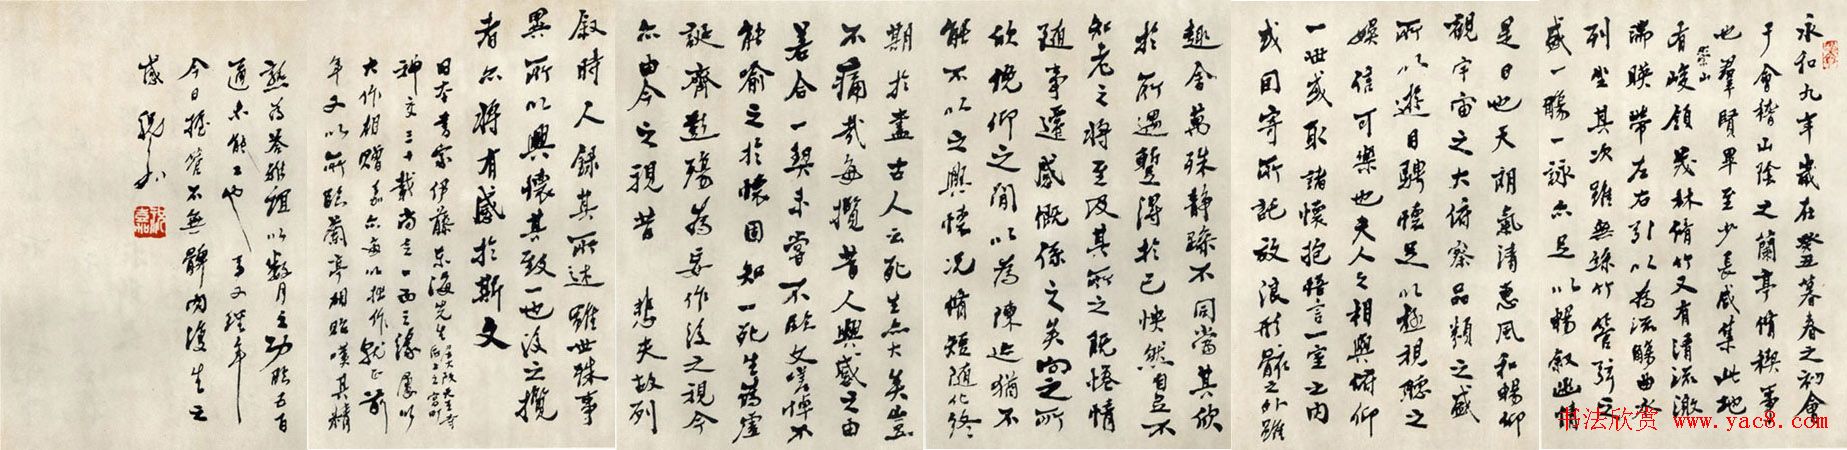 永和九年歲在癸丑暮春之初會
于會稽山陰之蘭亭脩稧事
也羣賢畢至少長咸集此地
崇山
有峻領茂林脩竹又有清流激
湍暎帶左右引以為流觴曲水
列坐其次雖無絲竹管弦之
盛一觴一詠亦足以暢敘幽情
是日也天朗氣清惠風和暢仰
觀宇宙之大俯察品類之盛
所以遊目騁懷足以極視聽之
娛信可樂也夫人之相與俯仰
一世或取諸懷抱悟言一室之內
或因寄所託放浪形骸之外雖
趣舍萬殊靜躁不同當其欣
於所遇暫得於己快然自足不
知老之將至及其所之既惓情
隨事遷感慨係之矣向之所
欣俛仰之間以為陳迹猶不
能不以之興懷況脩短隨化終
期於盡古人云死生亦大矣豈
不痛哉每攬昔人興感之由
若合一契未嘗不臨文嗟悼不
能喻之於懷固知一死生為虛
誕齊彭殤為妄作後之視今
亦由今之視昔 悲夫故列
敘時人錄其所述雖世殊事
異所以興懷其致一也後之攬
者亦將有感於斯文
日本書家伊藤東海先生
神交三十載尚無一面之緣屢以
大作相贈余亦每以拙作就正前
年又以所臨蘭亭相貽嘆其精
熟為答雅誼以數月之功臨五百
過未能工也
今日握管不無髀肉復生之
感
书法欣赏 www.yac8.com